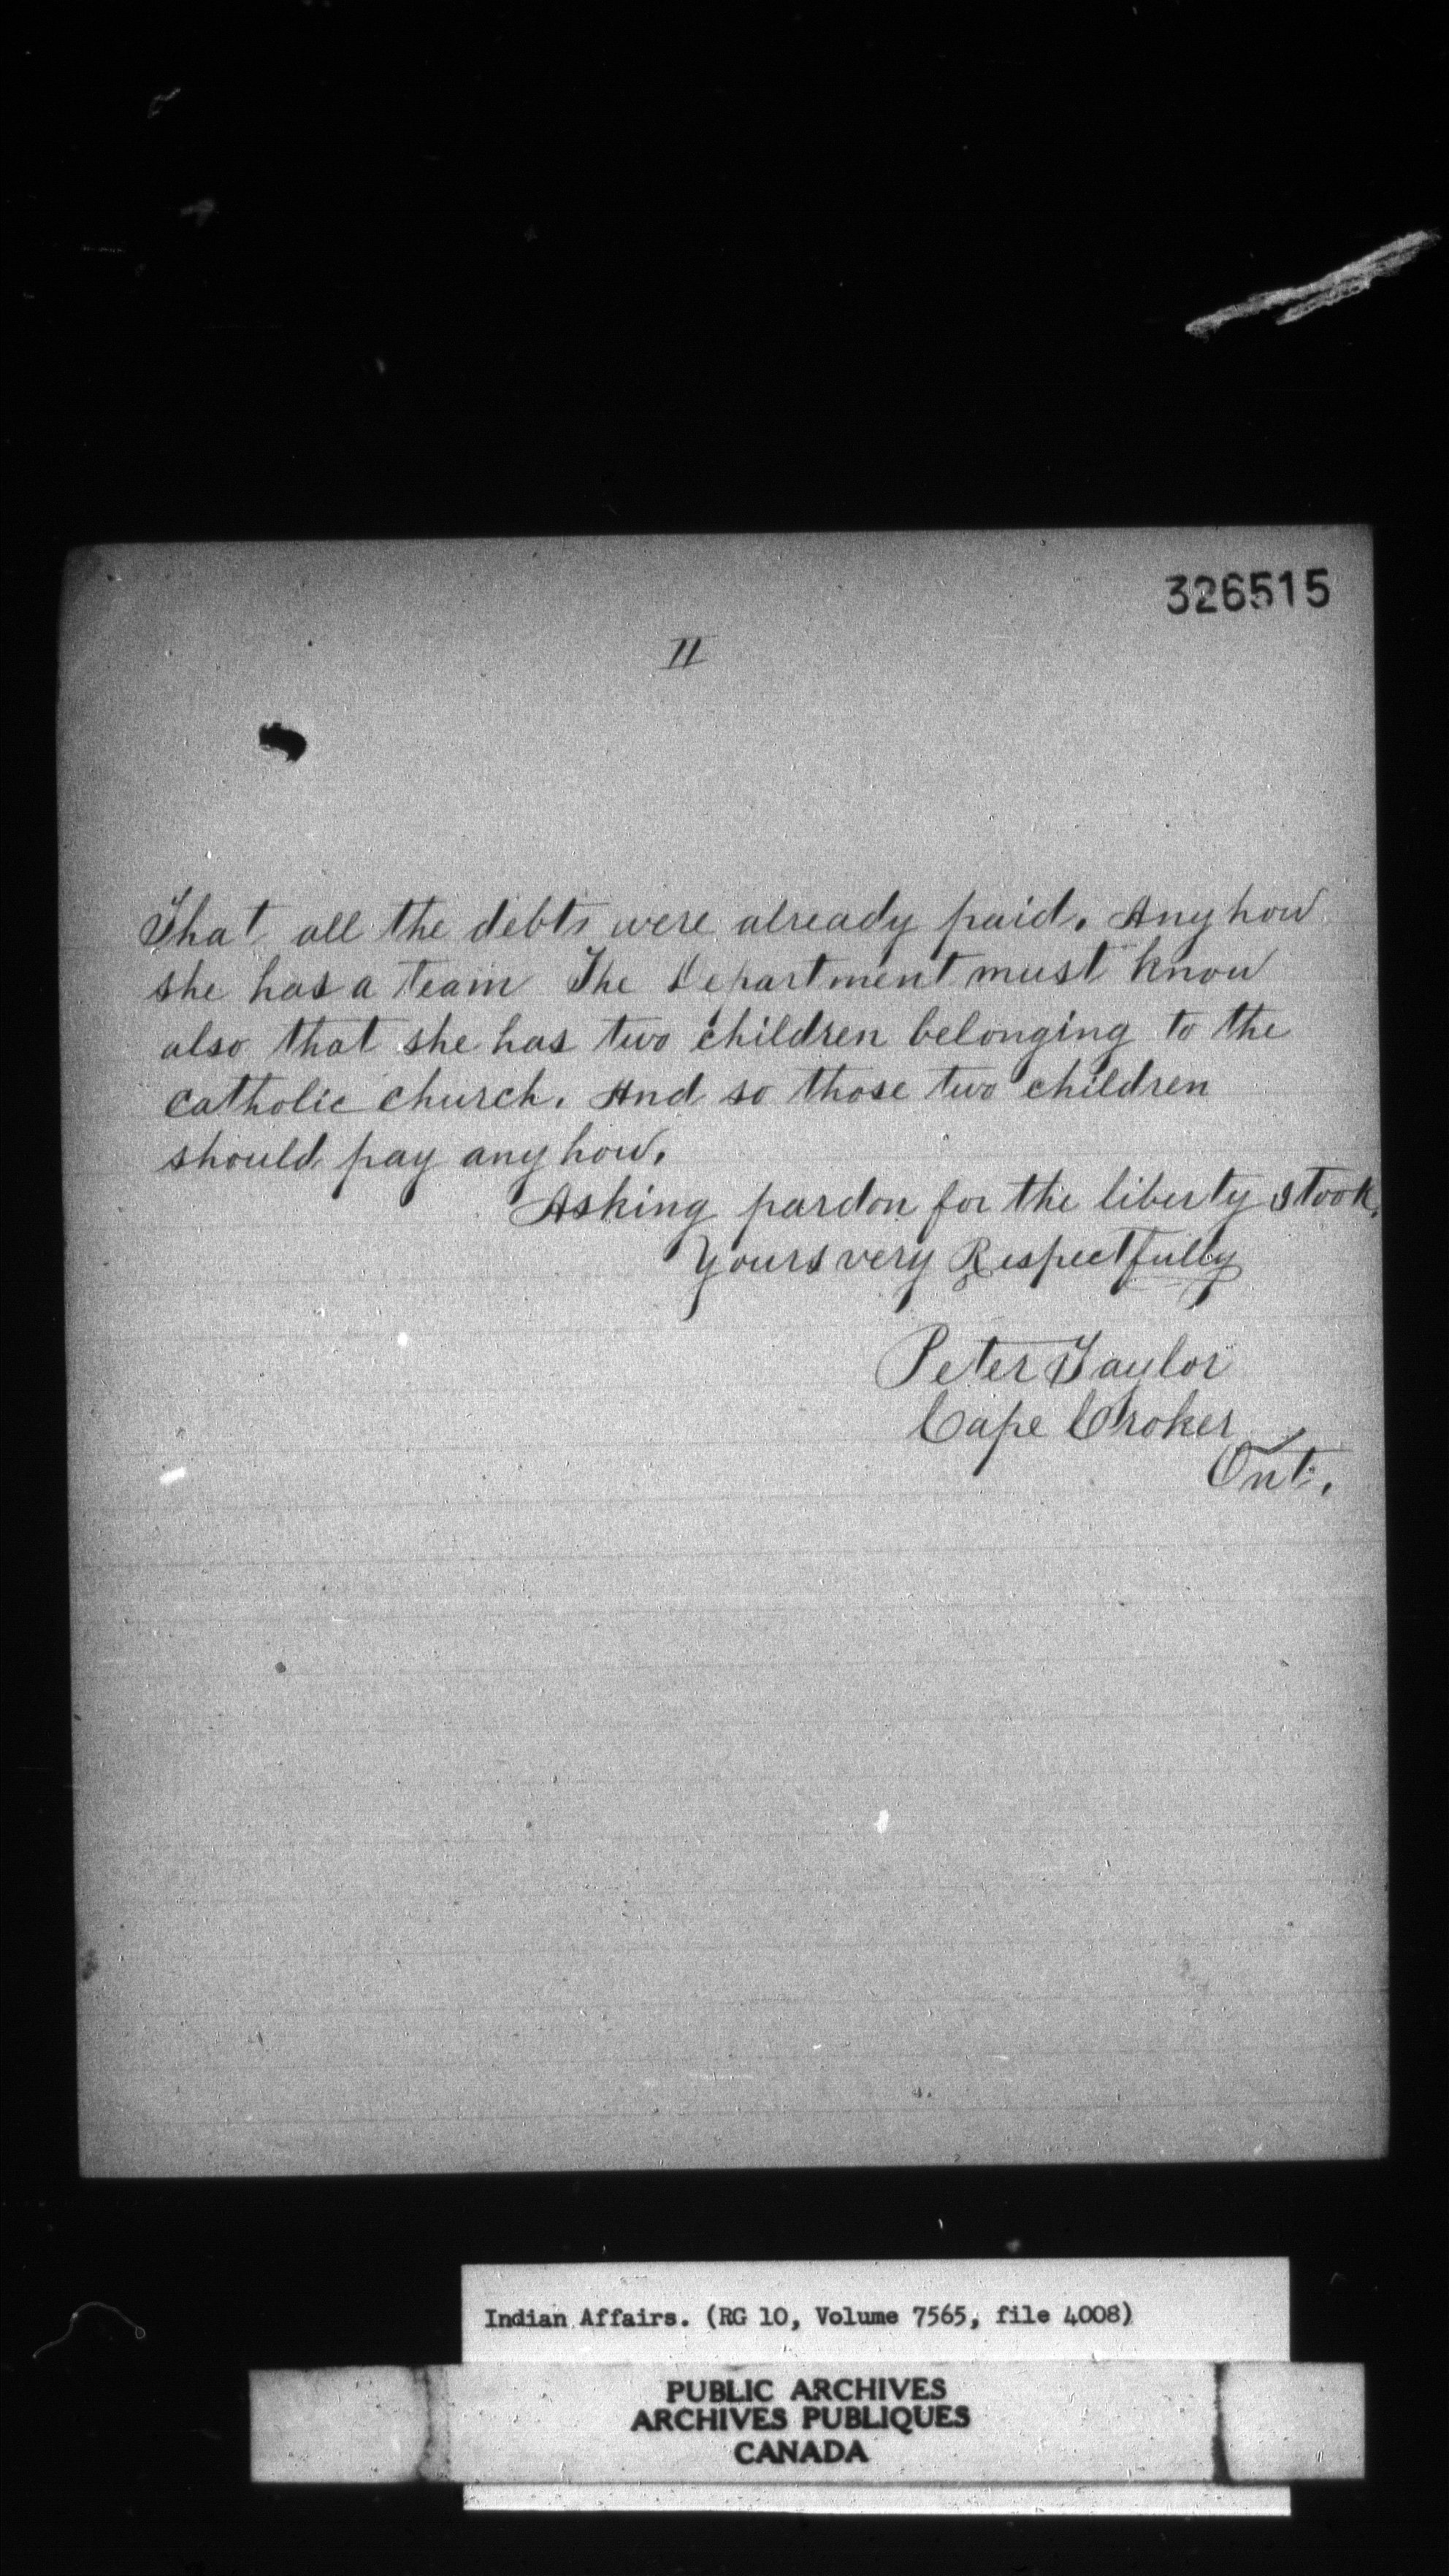 326515
II
That all the debts were already paid. Anyhow
she has a team The Department must know
also that she has two children belonging to the
catholic church. And so those two children
should pay anyhow.
Asking pardon for the liberty I took.
Yours very Respectfully
Peter Taylor
Cape Croker
Ont.
Indian Affairs. (RG 10, Volume 7565, file 4008)
PUBLIC ARCHIVES
ARCHIVES PUBLIQUES
CANADA